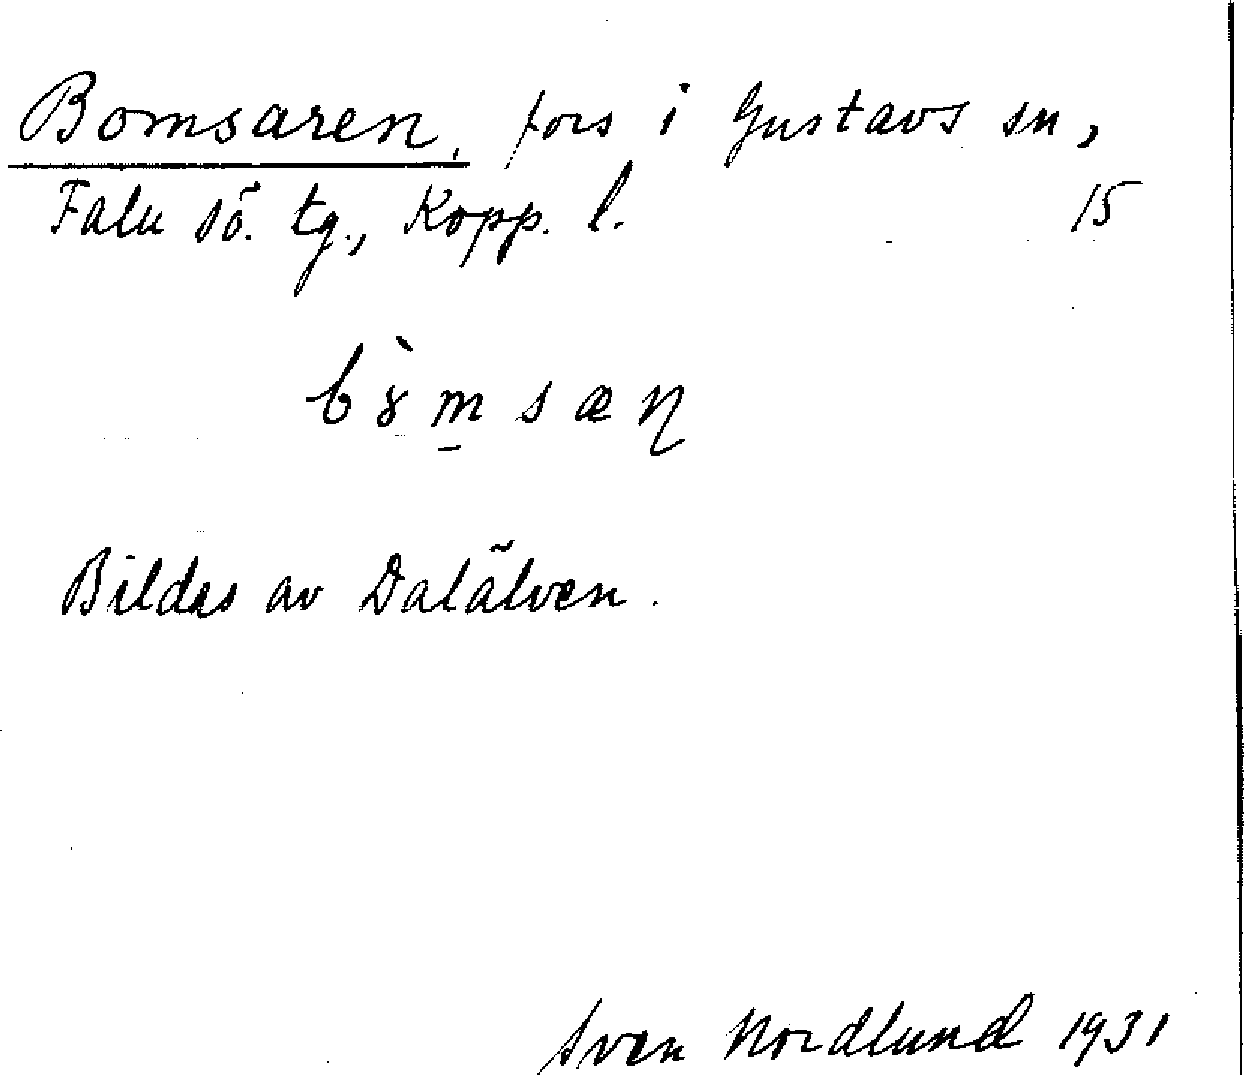 Bomsaren, fors i Gustavs sn,
Falu sö. tg., Kopp. l. 15
Bildas av Dalälven.
Sven Nordlund 1931